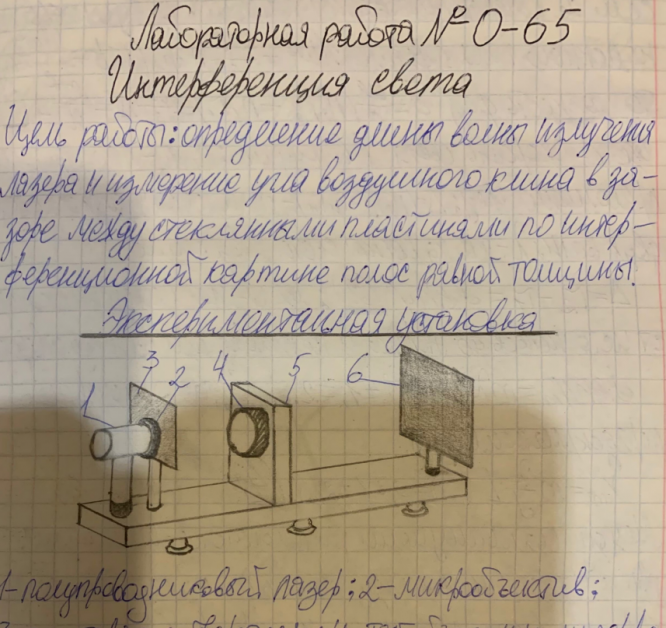 Лабораторная работа № О-65
Интерференция света
Цель работы: определение длины волны излучения
лазера и измерение угла воздушного клина в за-
зоре между стеклянными пластинами по интер-
ференционной картине полос равной толщины.
Экспериментальная установка
3 2 4 5 6
1
1-полупроводниковый лазер; 2-микрообъектив;